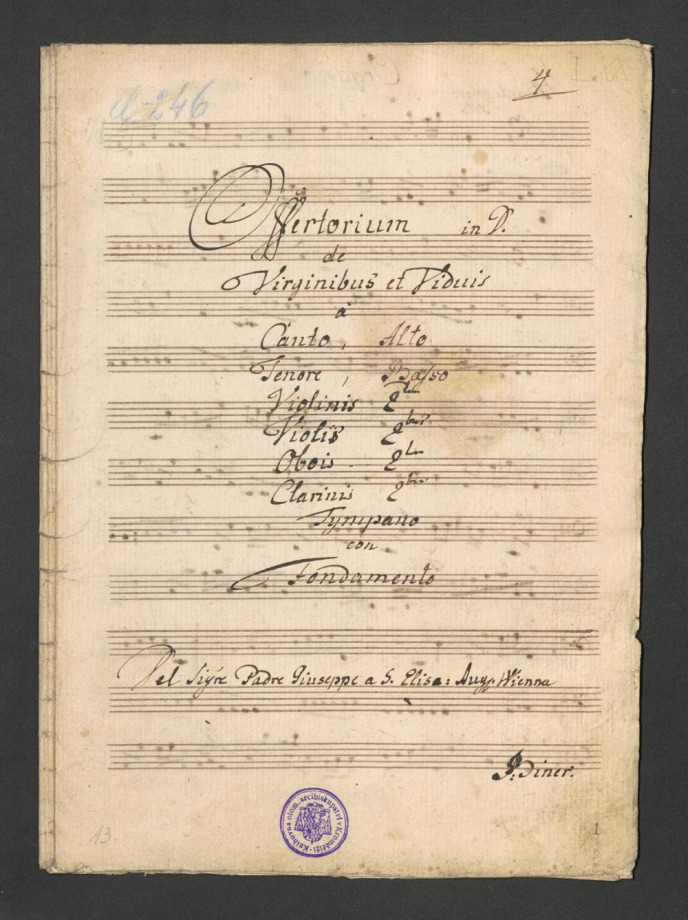 4
A-246
Offertorium in D.
de
Virginibus et Viduis
à
Canto, Alto
Tenore, Basso
Violinis 2bus
Violis 2bus
Obois 2bus
Clarinis 2bus
Tympano
con
Fondamento
Del Sigre Padre Giuseppe a S. Elisa: Aug. Wienna
P: Diner.
Knihovna olom. arcibiskupství v Kroměříži
13
1